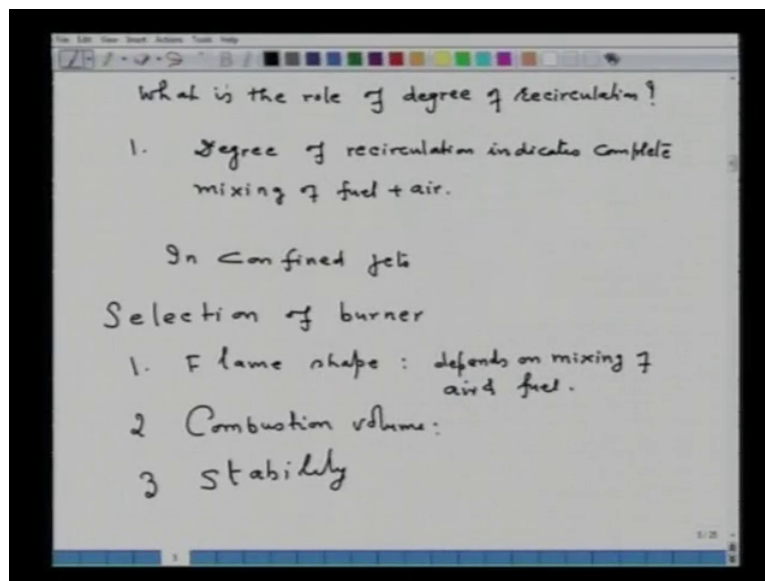 File Edit View Insert Actions Tools Help
What is the role of degree of recirculation?
1. Degree of recirculation indicates complete
mixing of fuel + air.
In confined jets
Selection of burner
1. Flame shape : depends on mixing of
air & fuel.
2 Combustion volume:
3 Stability
5/25
5